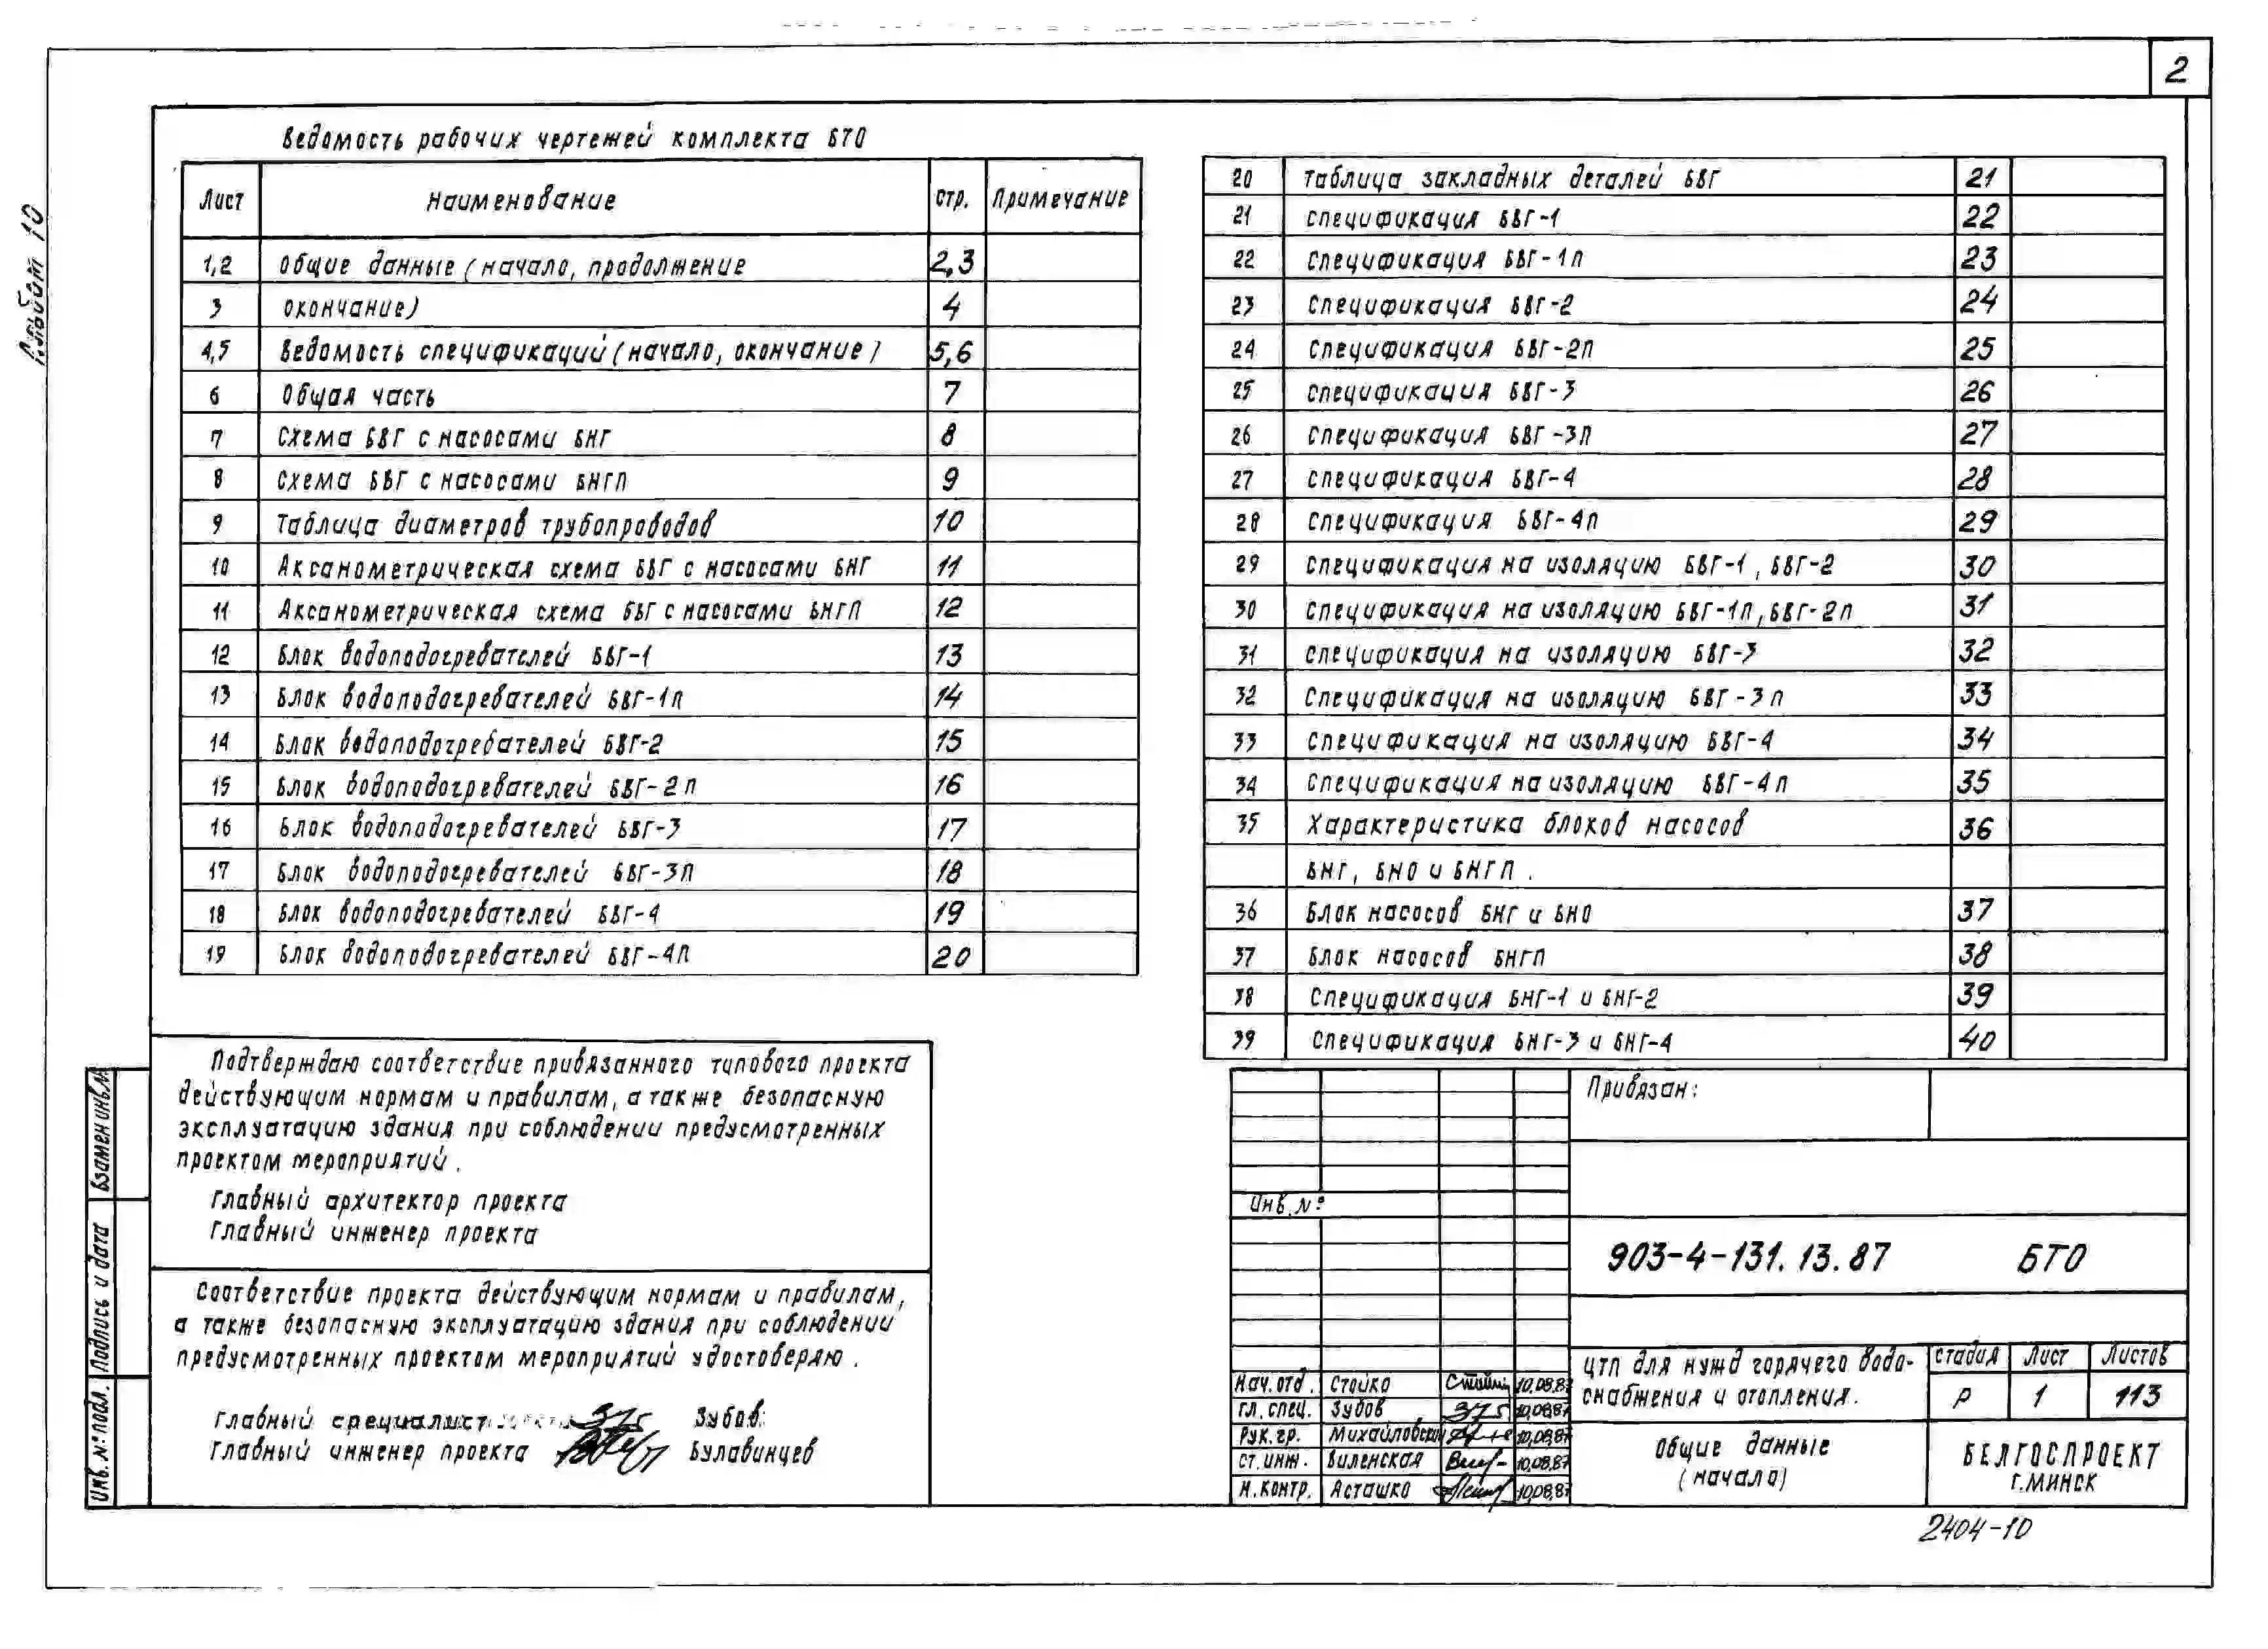 2
Альбом 10
Ведомость рабочих чертежей комплекта БТО
Лист Наименование стр. Примечание
1,2 Общие данные (начало, продолжение 2,3
3 окончание) 4
4,5 Ведомость спецификаций (начало, окончание) 5,6
6 Общая часть 7
7 Схема БВГ с насосами БНГ 8
8 Схема БВГ с насосами БНГП 9
9 Таблица диаметров трубопроводов 10
10 Аксанометрическая схема БВГ с насосами БНГ 11
11 Аксанометрическая схема БВГ с насосами БНГП 12
12 Блок водоподогревателей БВГ-1 13
13 Блок водоподогревателей БВГ-1П 14
14 Блок водоподогревателей БВГ-2 15
15 Блок водоподогревателей БВГ-2П 16
16 Блок водоподогревателей БВГ-3 17
17 Блок водоподогревателей БВГ-3П 18
18 Блок водоподогревателей БВГ-4 19
19 Блок водоподогревателей БВГ-4П 20
20 Таблица закладных деталей БВГ 21
21 Спецификация БВГ-1 22
22 Спецификация БВГ-1П 23
23 Спецификация БВГ-2 24
24 Спецификация БВГ-2П 25
25 Спецификация БВГ-3 26
26 Спецификация БВГ-3П 27
27 Спецификация БВГ-4 28
28 Спецификация БВГ-4П 29
29 Спецификация на изоляцию БВГ-1, БВГ-2 30
30 Спецификация на изоляцию БВГ-1П, БВГ-2П 31
31 Спецификация на изоляцию БВГ-3 32
32 Спецификация на изоляцию БВГ-3П 33
33 Спецификация на изоляцию БВГ-4 34
34 Спецификация на изоляцию БВГ-4П 35
35 Характеристика блоков насосов 36
БНГ, БНО и БНГП.
36 Блок насосов БНГ и БНО 37
37 Блок насосов БНГП 38
38 Спецификация БНГ-1 и БНГ-2 39
39 Спецификация БНГ-3 и БНГ-4 40
Подтверждаю соответствие привязанного типового проекта
действующим нормам и правилам, а также безопасную
эксплуатацию здания при соблюдении предусмотренных
проектом мероприятий.
Главный архитектор проекта
Главный инженер проекта
Соответствие проекта действующим нормам и правилам,
а также безопасную эксплуатацию здания при соблюдении
предусмотренных проектом мероприятий удостоверяю.
Главный специалист Зубов.
Главный инженер проекта Булавинцев
Взамен инв.№
Подпись и дата
Инв. № подл.
Привязан:
Инв. №:
903-4-131.13.87 БТО
ЦТП для нужд горячего водо-
снабжения и отопления.
стадия Лист Листов
Р 1 113
Нач. отд. Стойко 10.08.87
Гл. спец. Зубов 10.08.87
Рук. гр. Михайловский 10.08.87
Ст. инж. Виленская 10.08.87
Н. контр. Асташко 10.08.87
Общие данные
(начало)
БЕЛГОСПРОЕКТ
г. МИНСК
2404-10